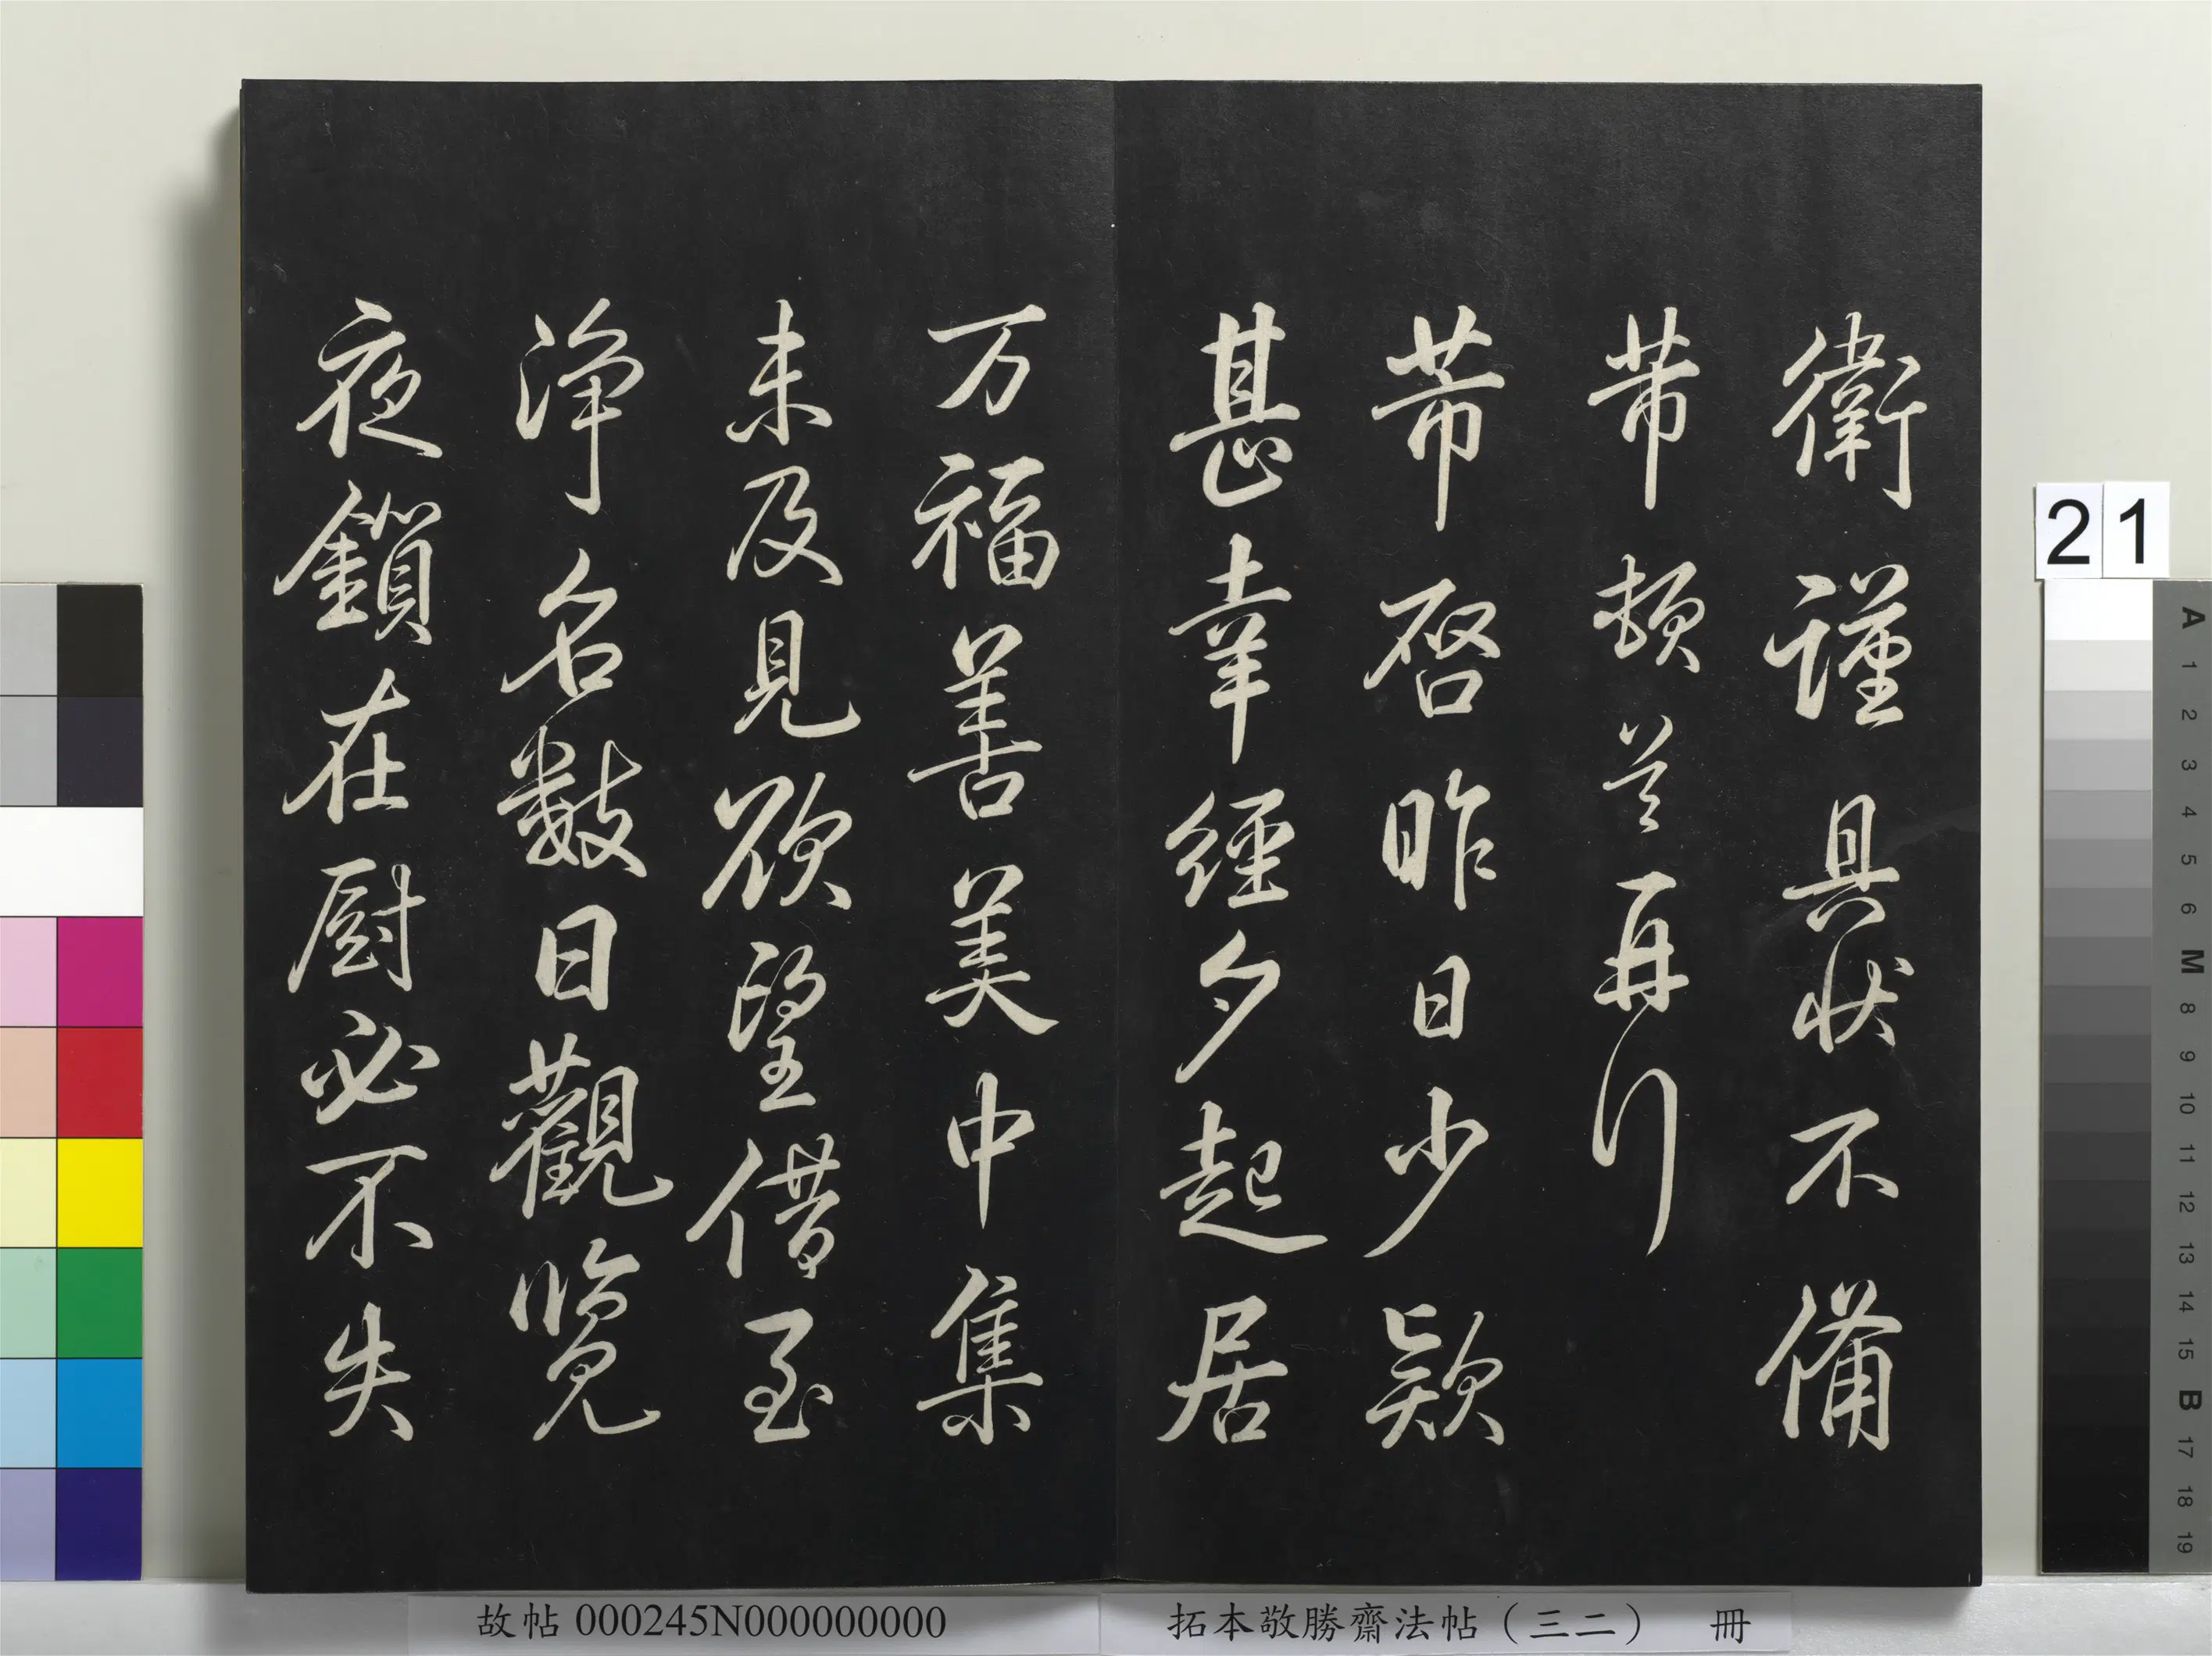 衛謹具狀不備
芾頓首再拜
芾啓昨日少款
甚幸經夕起居
万福善美中集
未及見欲望借至
淨名數日觀覽
夜鎖在厨必不失
21
A 1 2 3 4 5 6 M 8 9 10 11 12 13 14 15 B 17 18 19
故帖 000245N000000000
拓本敬勝齋法帖（三二） 冊